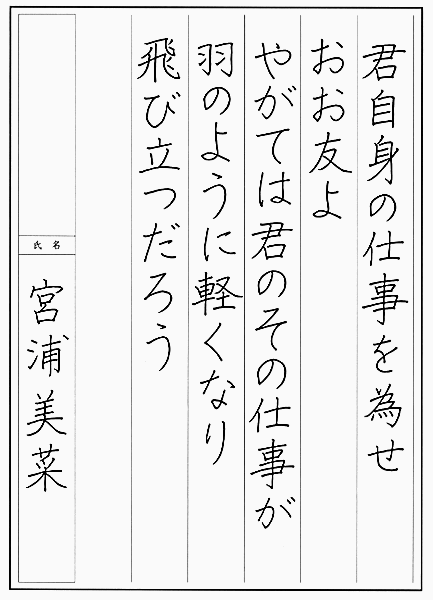 君自身の仕事を為せ
おお友よ
やがては君のその仕事が
羽のように軽くなり
飛び立つだろう
氏名
宮浦美菜